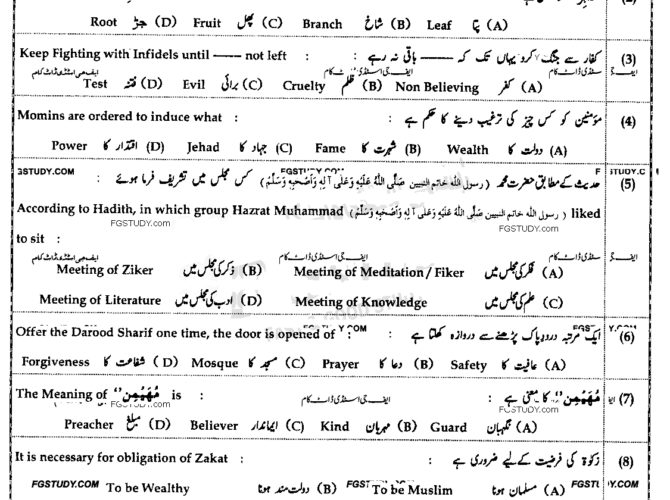 Root جڑ (D) Fruit پھل (C) Branch شاخ (B) Leaf پتا (A)
Keep Fighting with Infidels until —— not left : کفار سے جنگ کرو یہاں تک کہ —— باقی نہ رہے : (3)
Test فتنہ (D) Evil برائی (C) Cruelty ظلم (B) Non Believing کفر (A)
Momins are ordered to induce what : مؤمنین کو کس چیز کی ترغیب دینے کا حکم ہے : (4)
Power اقتدار کا (D) Jehad جہاد کا (C) Fame شہرت کا (B) Wealth دولت کا (A)
GSTUDY.COM FGSTUDY.COM STUDY.C
حدیث کے مطابق حضرت محمد (رسول اللہ خاتم النبیین صَلَّی اللہُ عَلَیْہِ وَعَلٰی آلِہٖ وَاَصْحٰبِہٖ وَسَلَّمَ) کس مجلس میں تشریف فرما ہوئے : (5)
According to Hadith, in which group Hazrat Muhammad (رسول اللہ خاتم النبیین صَلَّی اللہُ عَلَیْہِ وَعَلٰی آلِہٖ وَاَصْحٰبِہٖ وَسَلَّمَ) liked
FGSTUDY.com FGSTUDY.com
to sit :
ایف جی اسٹڈی ڈاٹ کام
Meeting of Ziker ذکر کی مجلس میں (B) Meeting of Meditation / Fiker فکر کی مجلس میں (A)
Meeting of Literature ادب کی مجلس میں (D) Meeting of Knowledge علم کی مجلس میں (C)
Offer the Darood Sharif one time, the door is opened of : ایک مرتبہ درود پاک پڑھنے سے دروازہ کھلتا ہے : (6)
Forgiveness شفاعت کا (D) Mosque مسجد کا (C) Prayer دعا کا (B) Safety عافیت کا (A)
The Meaning of "مُهَيْمِن" is : "مُهَيْمِن" کا معنی ہے : (7)
FGSTUDY.com ایف جی اسٹڈی ڈاٹ کام FGSTUDY.com
Preacher مبلغ (D) Believer ایماندار (C) Kind مہربان (B) Guard نگہبان (A)
It is necessary for obligation of Zakat : زکوٰۃ کی فرضیت کے لیے ضروری ہے : (8)
FGSTUDY.COM To be Wealthy دولت مند ہونا (B) To be Muslim مسلمان ہونا (A)